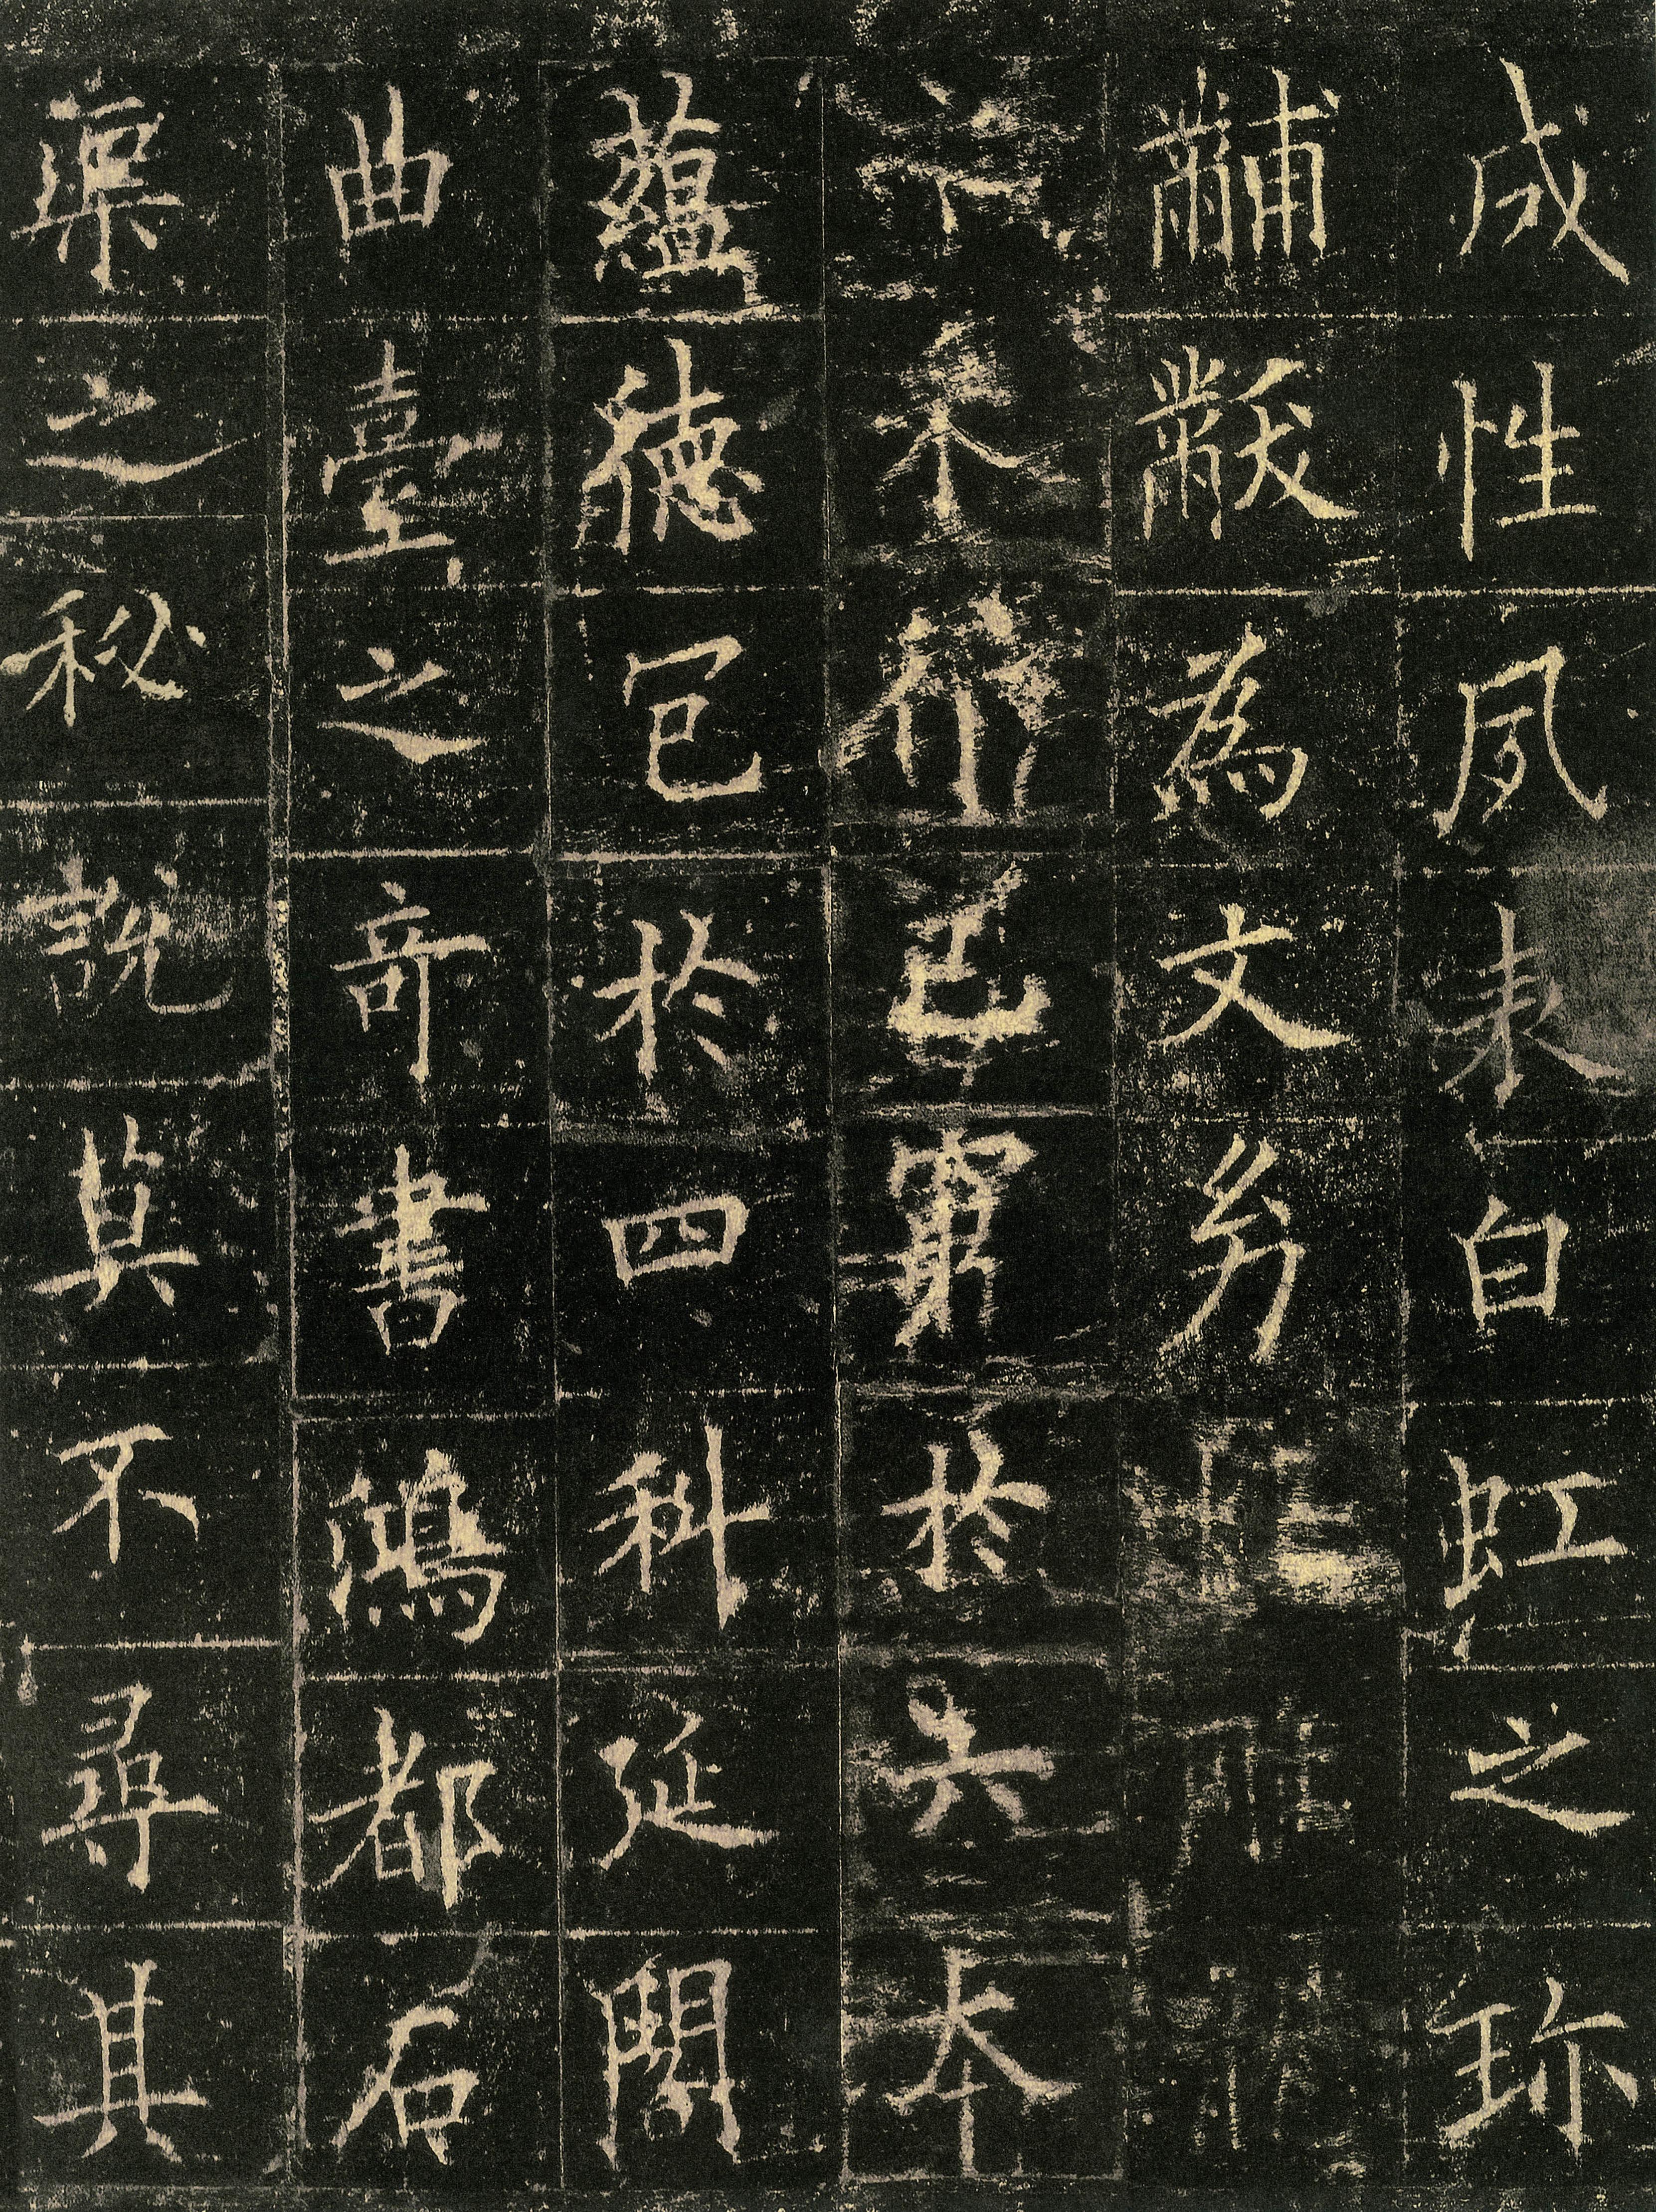 成性夙表白虹之珍
黼黻為文幼
采行己窮於六本
蘊德包於四科延閣
曲臺之奇書鴻都石
渠之秘說莫不尋其